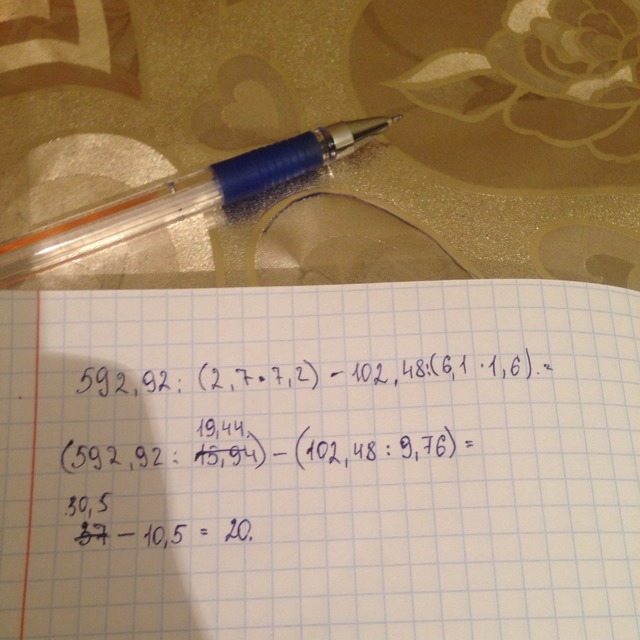 592,92 : (2,7 · 7,2) - 102,48:(6,1 · 1,6). =
19,44,
(592,92 : 15,94) - (102,48 : 9,76) =
30,5
37 - 10,5 = 20.